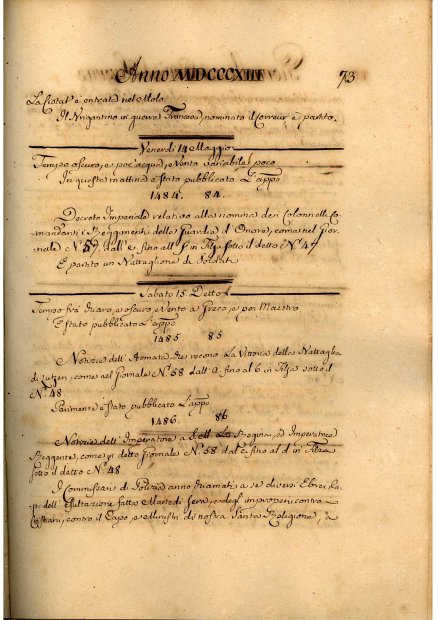 Anno MDCCCXIII 73
La Ciotat è entrata nel Molo.
Il Brigantino in guerra Francese, nominato è partito.
Venerdì 14 Maggio
Tempo oscuro, e poc' acqua, e Vento variabile poco
In questa mattina è stato pubblicato L'appo
1484. 84.
Decreto Imperiale relativo alla nomina dei Colonnelli Co-
mandanti i Reggimenti delle Guardie d'Onore, come nel Gior-
nale N.º 57. dall' fino al in Filza sotto il detto N.º 47
È partito un Battaglione di Soldati
Sabato 15 Detto
Tempo frà chiaro, e oscuro, e Vento a Greco, e poi Maestro
È stato pubblicato L'appo
1485 85
Notizie dell' Armata, che recono La Vittoria della Battaglia
di Lutzen, come nel Giornale N.º 58 dall' a fino al 6 in Filza sotto il
N.º 48
Parimente è stato pubblicato L'appo
1486. 86
Notizie dell' Imperatore a S. M. La Regina, ed Imperatrice
Reggente, come pr detto Giornale N.º 58 dal c fino al d in Filza
sotto il detto N.º 48
I Commissari di Polizia anno chiamati a se diversi Ebrei, Ca-
pi dell' Esultazione fatta Martedì sera, e degl' improperi contro a
Cristiani, contro il Capo, e Ministri di nostra Santa Religione, a